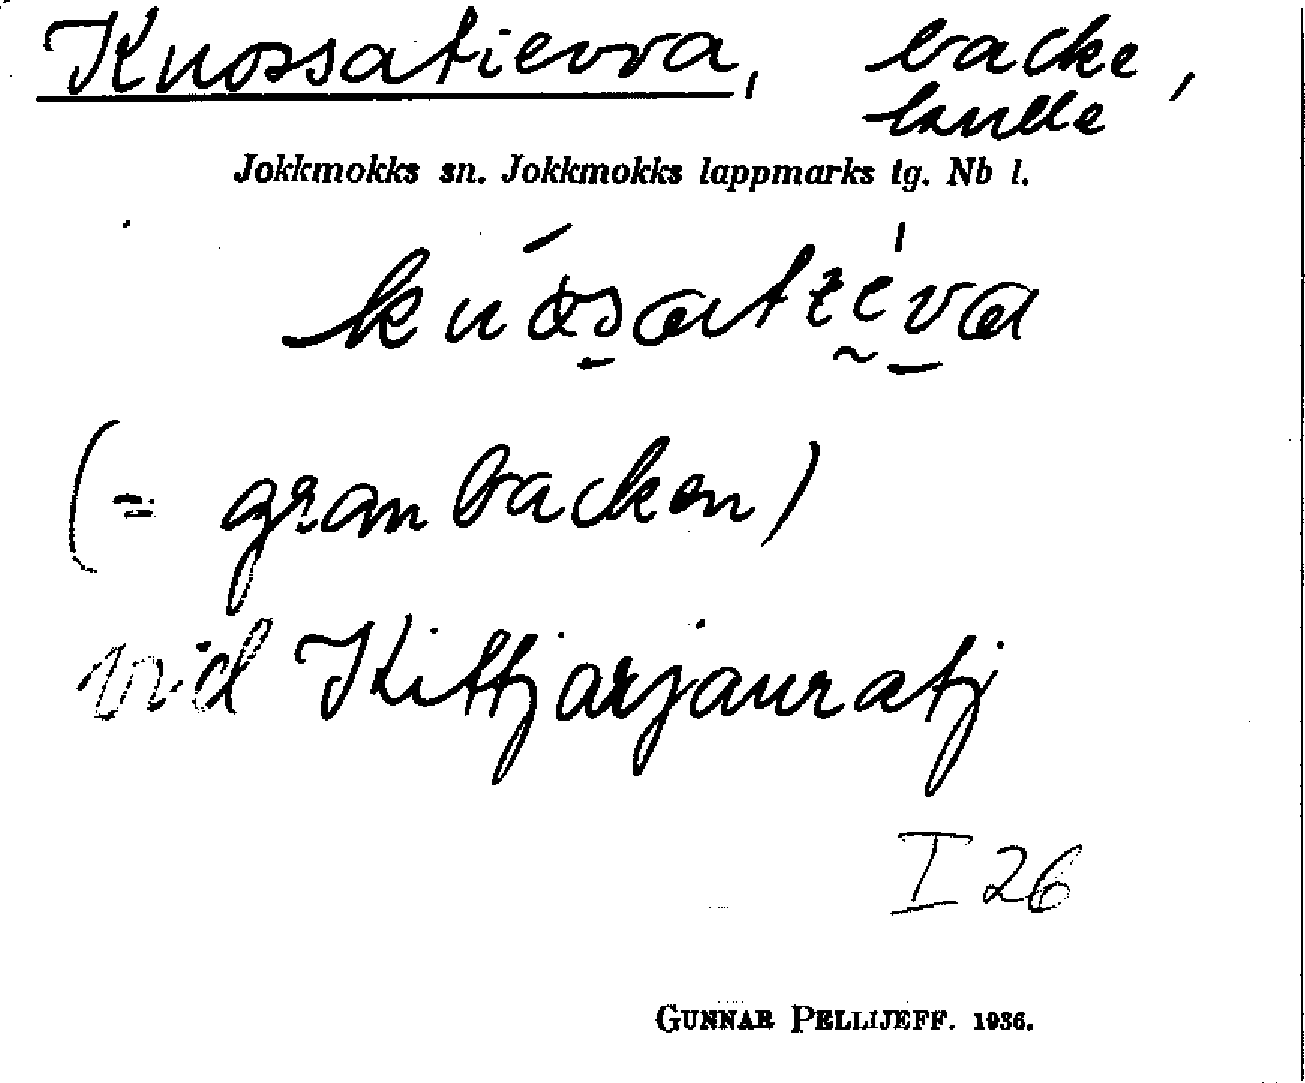 Kuossatievva, backe,
kulle
Jokkmokks sn. Jokkmokks lappmarks tg. Nb l.
(= granbacken)
vid Kittjarjauratj
I 26
GUNNAR PELLIJEFF. 1936.